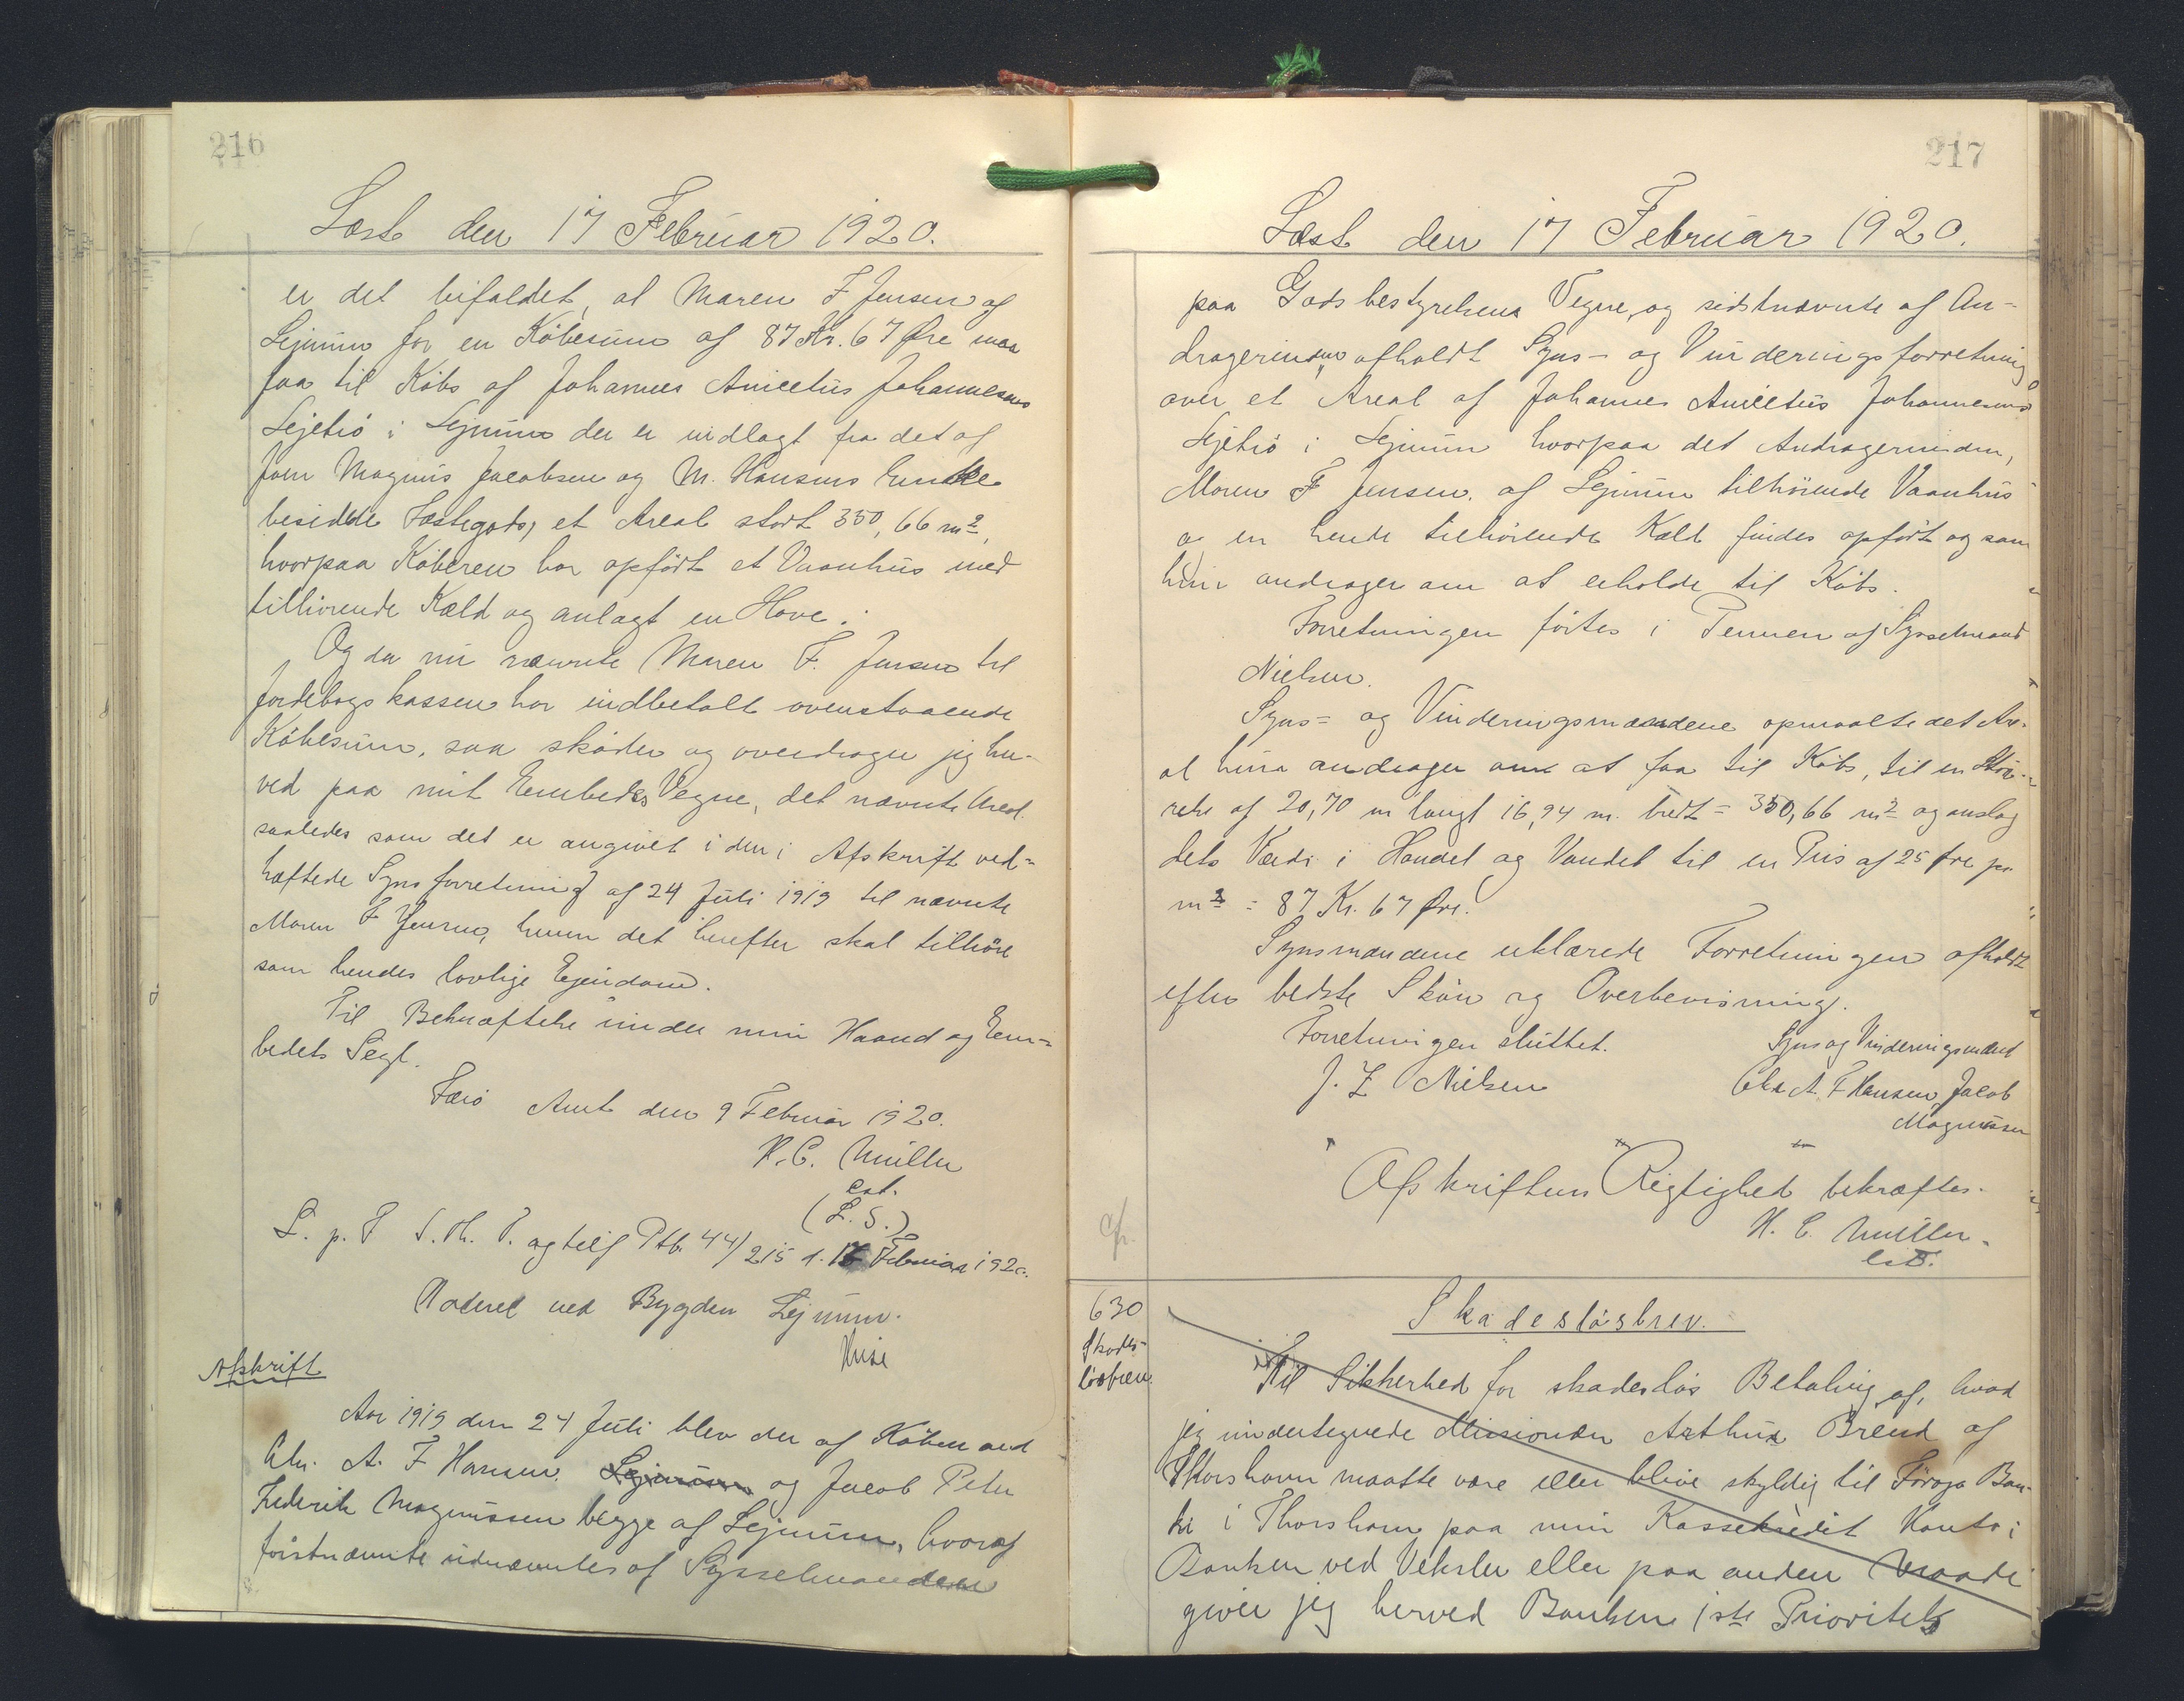 216
Læst den 17 Februar 1920.
er det bifaldet, at Maren F Jensen af
Lejnum for en Købesum af 87 Kr. 67 Øre maa
faa til Købs af Johannes Anicetus Johannesens
Lejetrö i Lejnum der er udlagt fra det af
Joen Magnus Jacobsen og M. Hansens Enke
besidde Fæstegods, et Areal stort 350,66 m2,
hvorpaa Køberen har opført et Vaanhus med
tilhörende Kæld og anlagt en Have.
Og da nu nævnte Maren F. Jensen til
Jordebogskassen har indbetalt ovenstaaende
Købesum, saa skøder og overdrager jeg her-
ved paa mit Embedes Vegne, det nævnte Areal
saaledes som det er angivet i den i Afskrift ved-
hæftede Synsforretning af 24 Juli 1919 til nævnte
Maren F Jensen, hvem det herefter skal tilhöre
som hendes lovlige Ejendom.
Til Bekræftelse under min Haand og Em-
bedets Segl.
Færö Amt den 9 Februar 1920.
H. C. Müller
cst.
(L. S.)
L. p. F S. Th. P. og Ptb. 44/215 d. 17 Februar 1920.
Noteret ved Bygden Lejnum.
Afskrift
Aar 1919 den 24 Juli blev der af Köbmand
Chr. A. F Hansen Lejnum og Jacob Peter
Frederik Magnussen begge af Lejnum, hvoraf
förstnævnte udnævntes af Sysselmanden
217
Læst den 17 Februar 1920.
paa Godsbestyrelsens Vegne, og sidstnævnte af An-
dragerinden afholdt Syns- og Vurderingsforretning
over et Areal af Johannes Anicetus Johannesens
Lejetrö i Lejnum hvorpaa det Andragerinden,
Maren F Jensen, af Lejnum tilhörende Vaanhus
og en hende tilhörende Kæld findes opfört og som
hun andrager om at erholde til Købs.
Forretningen förtes i Pennen af Sysselmand
Nielsen.
Syns- og Vurderingsmændene opmaalte det Are-
al hun andrager om at faa til Købs, til en Stör-
relse af 20,70 m langt 16,94 m. bredt = 350,66 m2 og anslog
dets Værdi i Handel og Vandel til en Pris af 25 Øre pr
m2 = 87 Kr. 67 Øre.
Synsmændene erklærede Forretningen afholdt
efter bedste Skön og Overbevisning.
Forretningen sluttet.
Syns og Vurderingsmænd
J. Z Nielsen
Chr A. F Hansen, Jacob
Magnussen
Afskriftens Rigtighed bekræftes.
H. C. Müller.
cst.
cfr.
630
Skades-
lösbrev.
Skadeslösbrev.
Til Sikkerhed for skadeslös Betaling af, hvad
jeg undertegnede Missionær Arthur Brend af
Thorshavn maatte være eller blive skyldig til Föroya Ban-
ki i Thorshavn paa min Kassekredit Konto i
Banken ved Veksler eller paa anden Maade
giver jeg herved Banken 1ste Prioritets